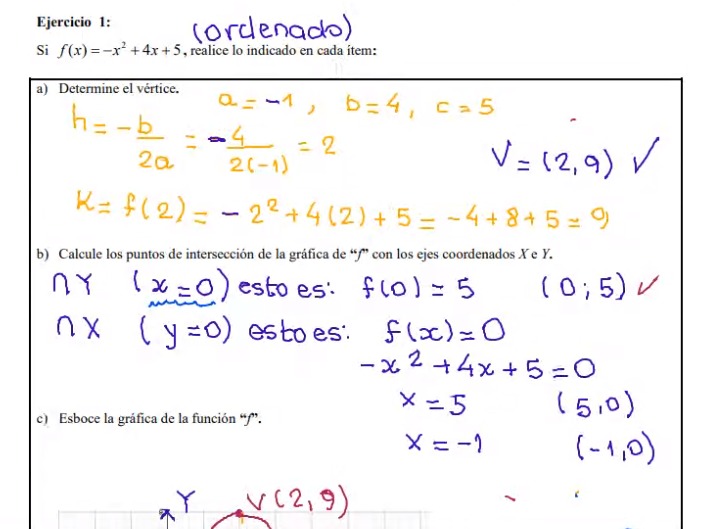 Ejercicio 1:
(ordenado)
Si f(x) = -x² + 4x + 5, realice lo indicado en cada ítem:
a) Determine el vértice.
a = -1, b = 4, c = 5
h = -b/2a = -4/2(-1) = 2
V = (2,9) ✓
K = f(2) = -2² + 4(2) + 5 = -4 + 8 + 5 = 9
b) Calcule los puntos de intersección de la gráfica de “f” con los ejes coordenados X e Y.
∩Y (x=0) esto es: f(0) = 5 (0;5) ✓
∩X (y=0) esto es: f(x) = 0
-x² + 4x + 5 = 0
x = 5 (5,0)
c) Esboce la gráfica de la función “f”.
x = -1 (-1,0)
Y V(2,9)